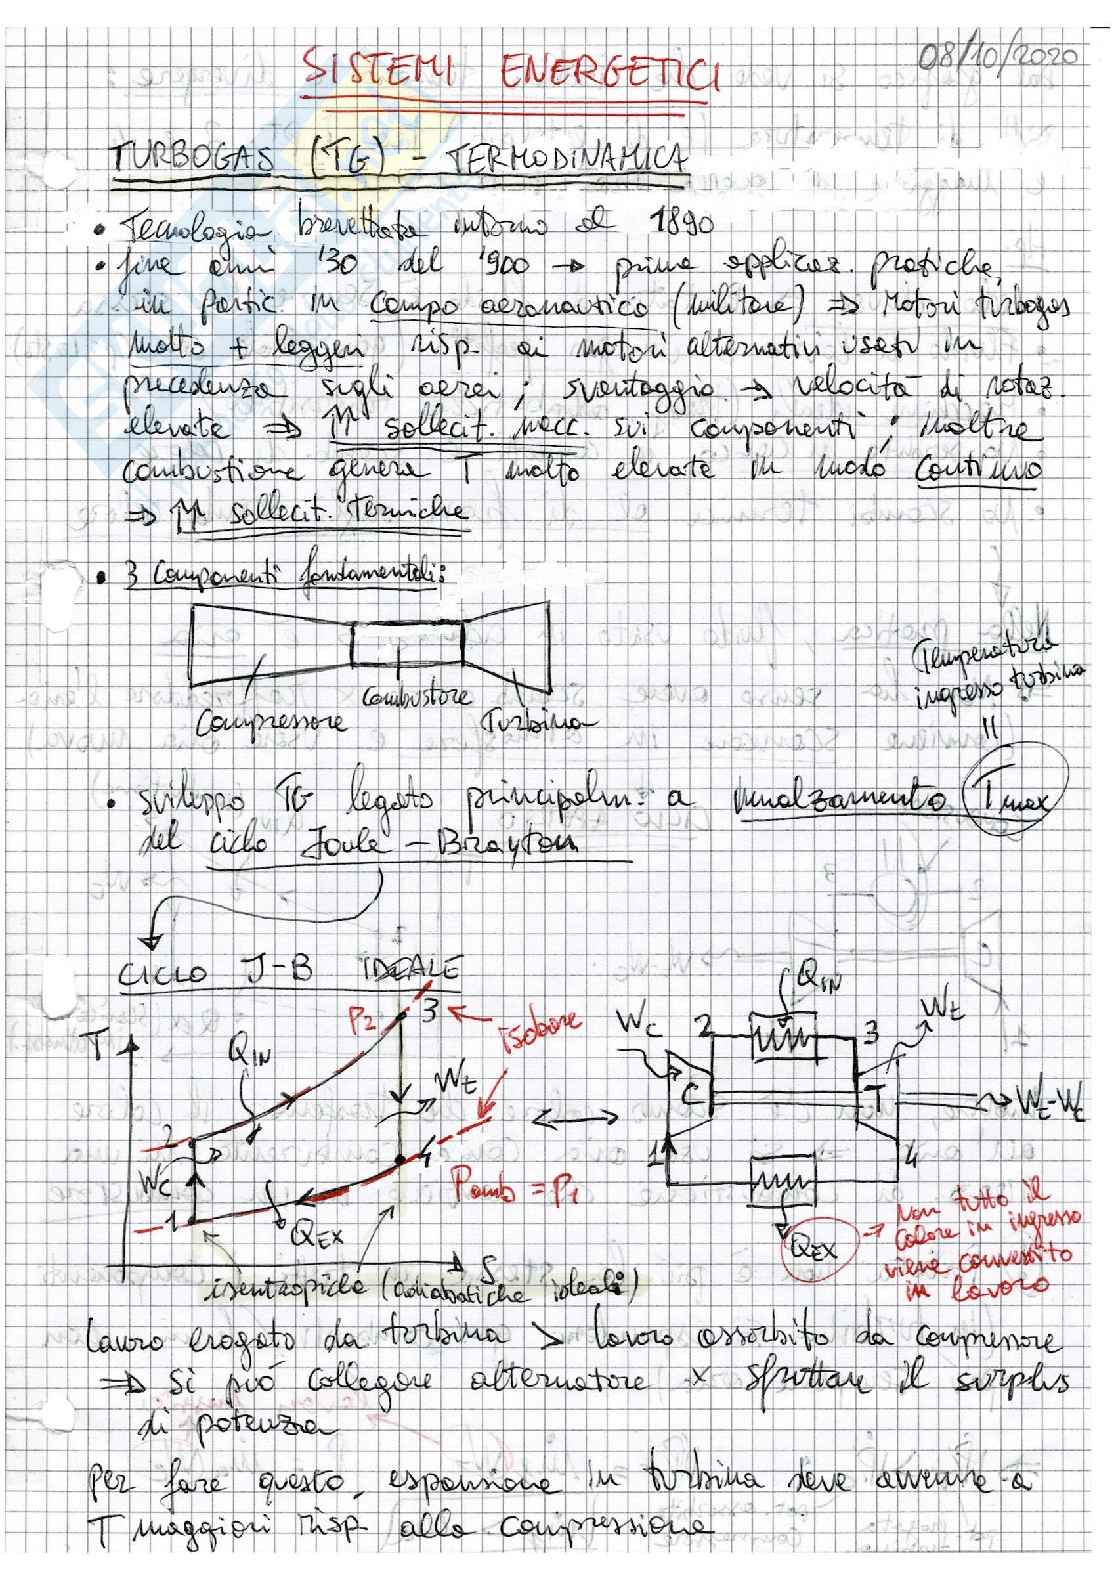 08/10/2020
SISTEMI ENERGETICI
TURBOGAS (TG) - TERMODINAMICA
• Tecnologia brevettata intorno al 1890
• fine anni '30 del '900 → prime applicaz. pratiche,
in partic in campo aeronautico (militare) ⇒ Motori turbogas
molto + leggeri risp. ai motori alternativi usati in
precedenza sugli aerei; svantaggio → velocità di rotaz.
elevate ⇒ ↑↑ sollecit. mecc. sui componenti; inoltre
combustione genera T molto elevate in modo continuo
⇒ ↑↑ sollecit. termiche
• 3 componenti fondamentali:
Compressore
Combustore
Turbina
Temperatura
ingresso turbina
=
• sviluppo TG legato principalm. a innalzamento Tmax
del ciclo Joule - Brayton
CICLO J-B IDEALE
T
P2
3
isobare
QIN
Wt
2
WC
4
1
Pamb = P1
QEX
S
isentropiche (adiabatiche ideali)
QIN
WC
2
3
Wt
C
T
Wt-Wc
1
4
QEX
→ Non tutto il
calore in ingresso
viene convertito
in lavoro
lavoro erogato da turbina > lavoro assorbito da compressore
⇒ si può collegare alternatore x sfruttare il surplus
di potenza
Per fare questo, espansione in turbina deve avvenire a
T maggiori risp. alla compressione